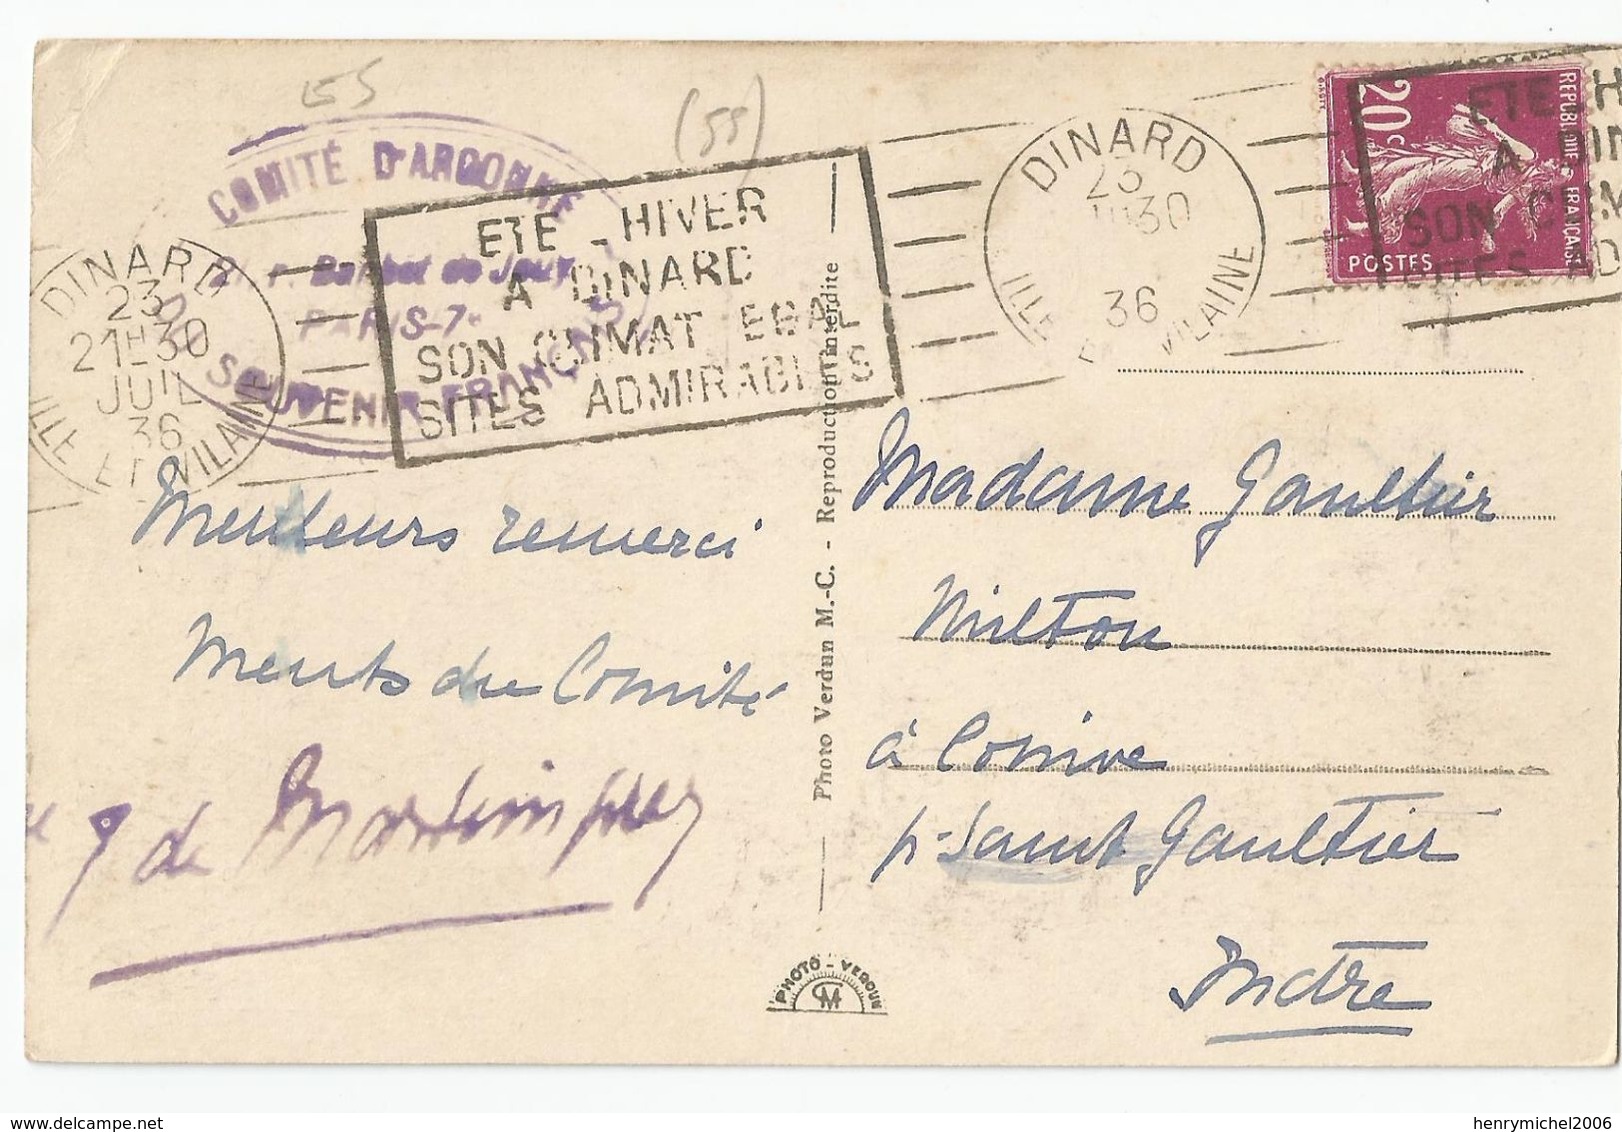 55
(55)
COMITÉ D'ARGONNE
Barbet de Jouy
PARIS-7e
DU SOUVENIR FRANÇAIS
DINARD
23
21H30
JUIL
36
ILLE ET VILAINE
ETE - HIVER
A DINARD
SON CLIMAT EGAL
SITES ADMIRABLES
DINARD
23
30
36
ILLE ET VILAINE
ETE - H
A DIN
SON CLIM
SITES AD
REPUBLIQUE FRANÇAISE
20c
POSTES
Meilleurs remerci
ments du Comité
de Martimprey
Photo Verdun M.-C. - Reproduction interdite
PHOTO - VERDUN
CM
Madame Gaultier
Milton
à Conive
p. Saint Gaultier
Indre
henrymichel2006